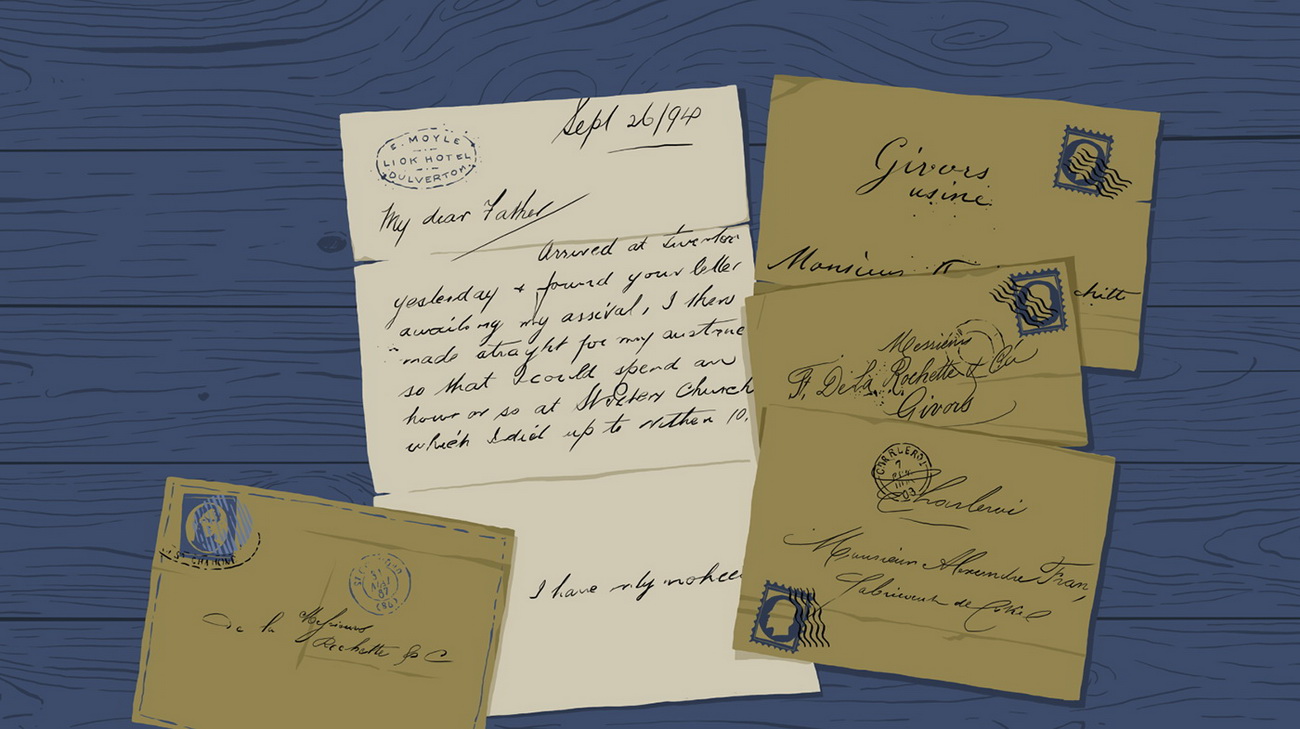 E. MOYLE
LIOK HOTEL
DULVERTON
Sept 26/94
My dear Father
Arrived at Tiverton
yesterday & found your letter
awaiting my arrival, I then
made straight for my
so that I could spend an
hour or so at Church
which I did up to within 10.
I have only
Givors
usine
Monsieur
chitt
Messieurs
F. De La Rochette & Cie
Givors
CHARLEROI
7
03
Charleroi
Monsieur Alexandre Fran,
Fabricant de
Messieurs
De la Rochette & C